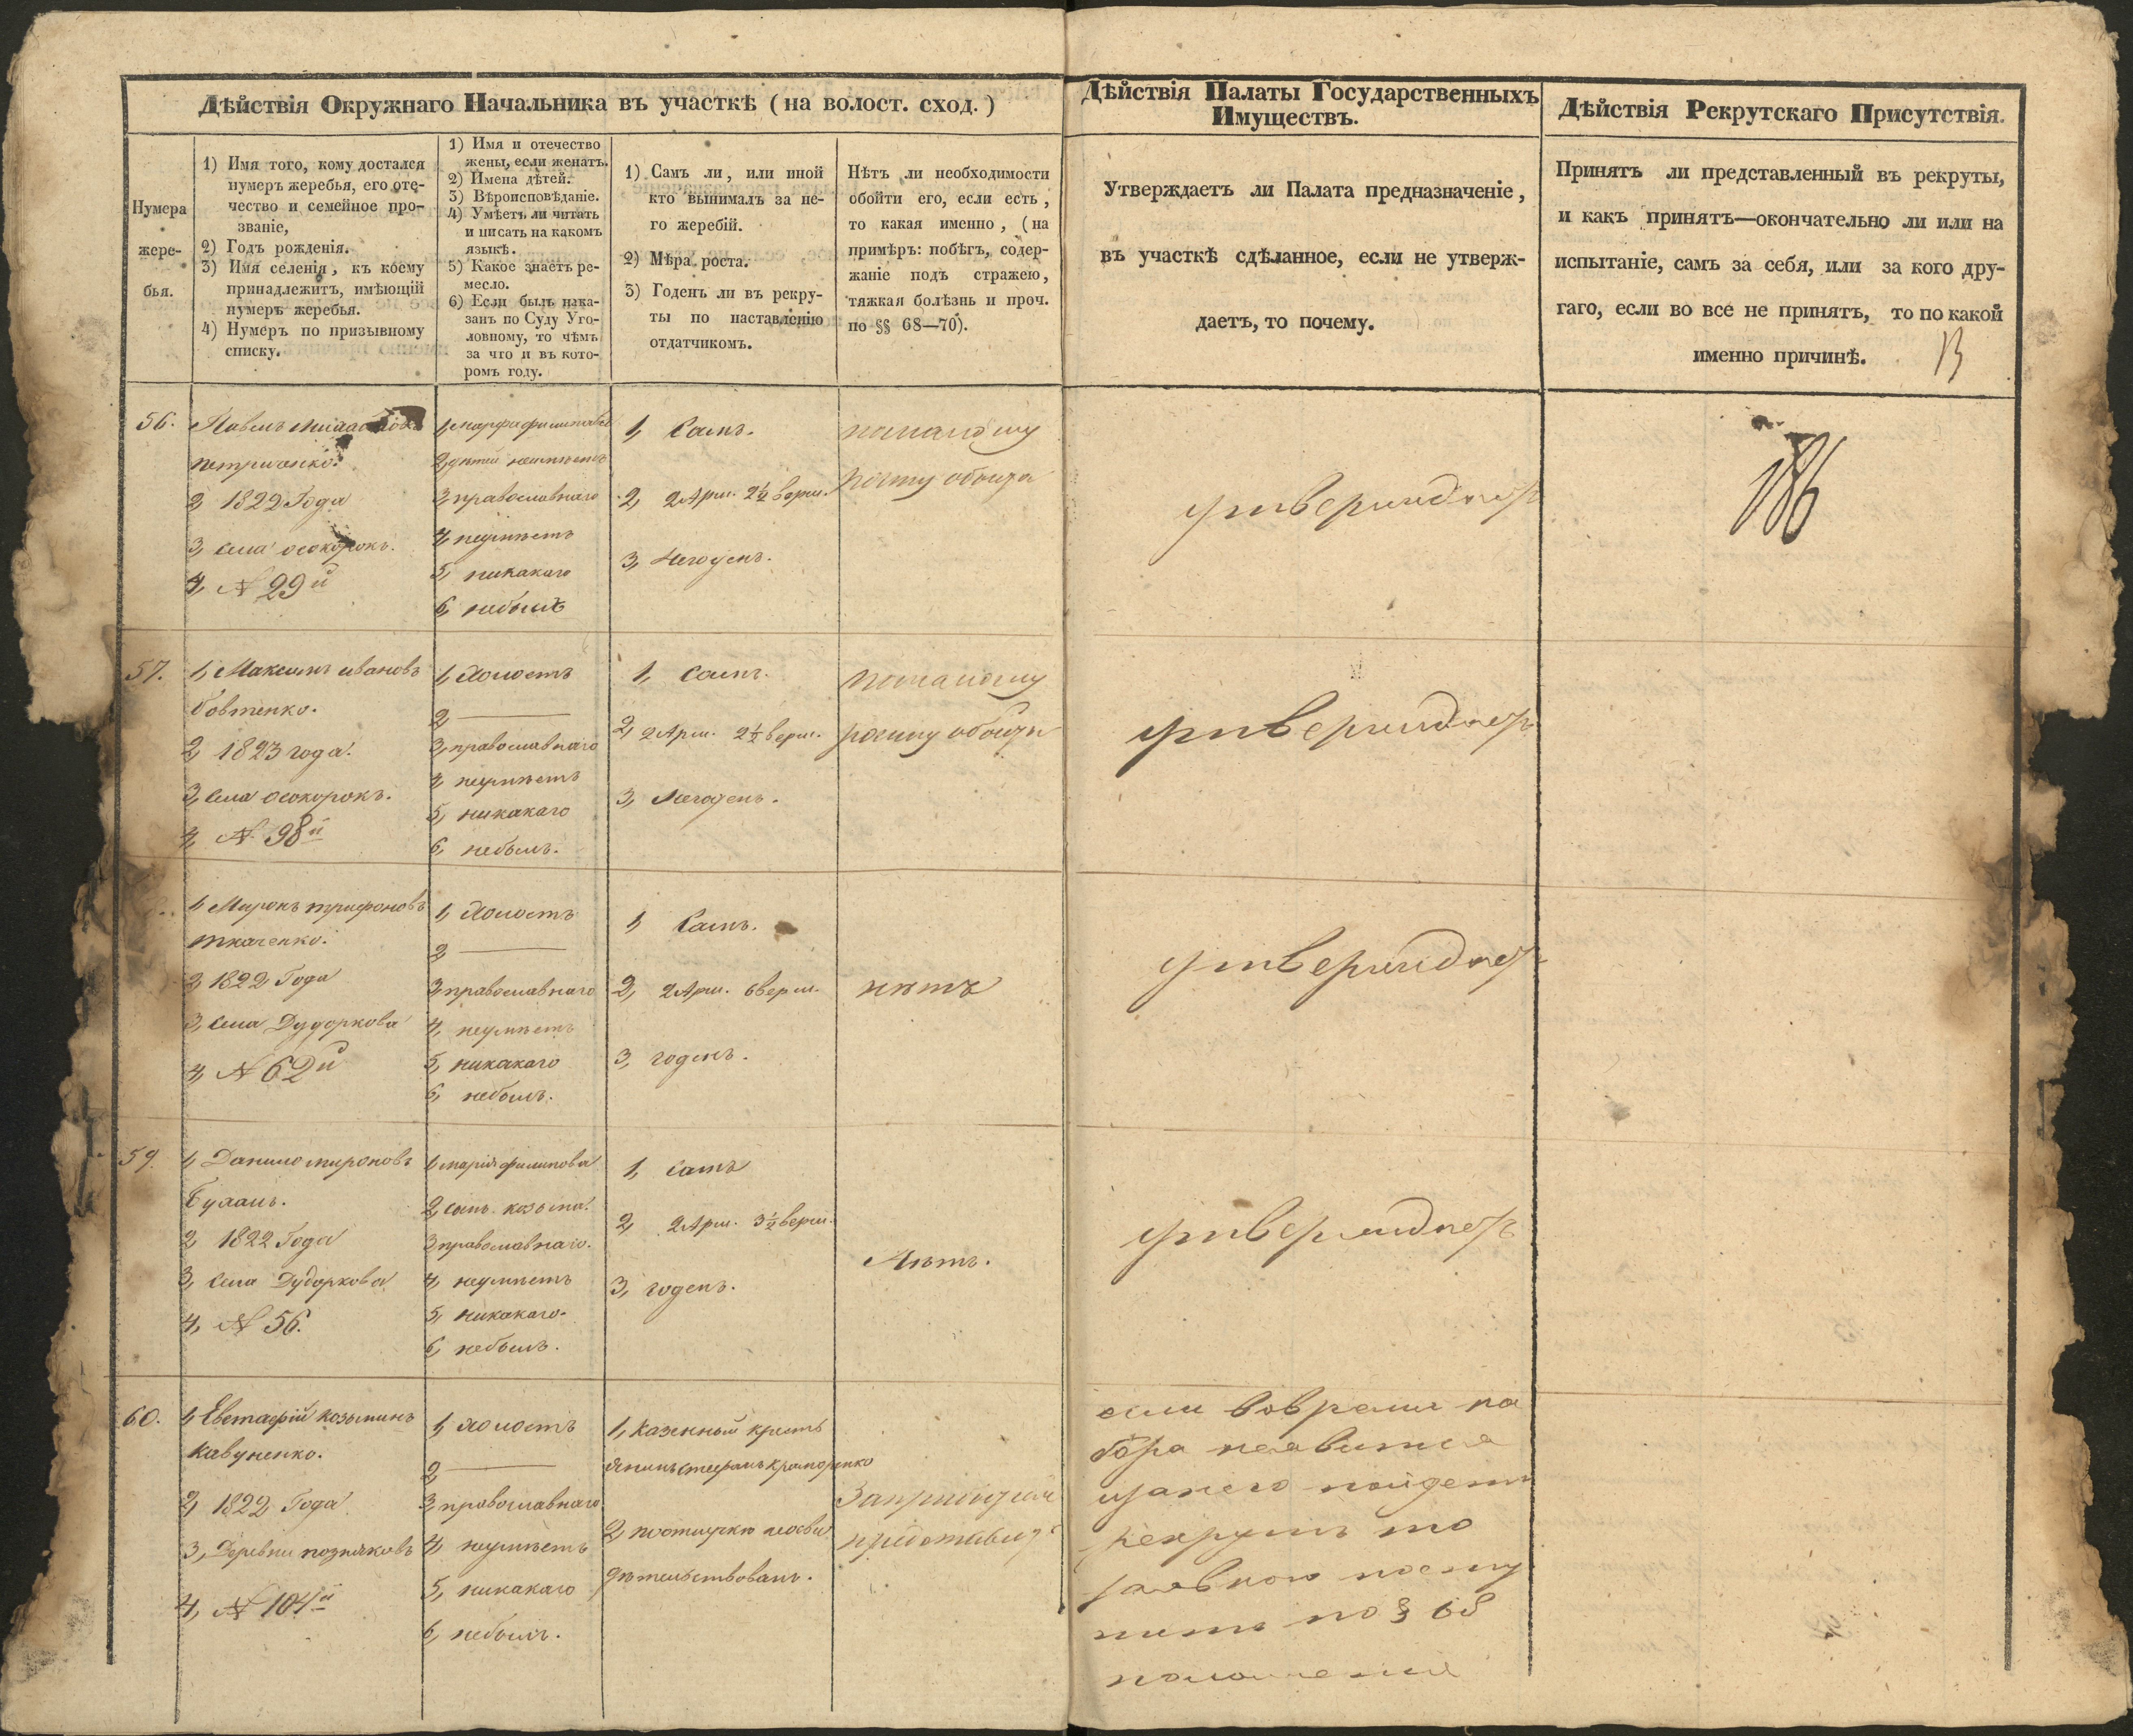 Дѣйствія Окружнаго Начальника въ участкѣ (на волост. сход.)
Нумера
жере-
бья.
1) Имя того, кому достался
нумеръ жеребья, его оте-
чество и семейное про-
званіе,
2) Годъ рожденія.
3) Имя селенія, къ коему
принадлежитъ, имѣющій
нумеръ жеребья.
4) Нумеръ по призывному
списку.
1) Имя и отечество
жены, если женатъ.
2) Имена дѣтей.
3) Вѣроисповѣданіе.
4) Умѣетъ ли читать
и писать на какомъ
языкѣ.
5) Какое знаетъ ре-
месло.
6) Если былъ нака-
занъ по Суду Уго-
ловному, то чѣмъ
за что и въ кото-
ромъ году.
1) Самъ ли, или иной
кто вынималъ за не-
го жеребій.
2) Мѣра роста.
3) Годенъ ли въ рекру-
ты по наставленію
отдатчикомъ.
Нѣтъ ли необходимости
обойти его, если есть,
то какая именно, (на
примѣръ: побѣгъ, содер-
жаніе подъ стражею,
тяжкая болѣзнь и проч.
по §§ 68—70).
Дѣйствія Палаты Государственныхъ
Имуществъ.
Утверждаетъ ли Палата предназначеніе,
въ участкѣ сдѣланное, если не утверж-
даетъ, то почему.
Дѣйствія Рекрутскаго Присутствія.
Принятъ ли представленный въ рекруты,
и какъ принятъ—окончательно ли или на
испытаніе, самъ за себя, или за кого дру-
гаго, если во все не принятъ, то по какой
именно причинѣ.
13
56.
Павелъ
петриченко.
2, 1822 Года
3, села осокорокъ.
4, № 29й
1, марфа филипова
2, дѣтей неимѣетъ
3, православнаго
4, неумѣетъ
5, никакаго
6, небылъ
1, Самъ.
2, 2 Арш. 2½ верш.
3, Негоденъ.
помалому
росту обойти
утверждаетъ
186
57.
1, Максимъ ивановъ
Бовтенко.
2, 1823 года.
3, села осокорокъ.
4, № 98й
1, Холостъ
2 —
3, православнаго
4, неумѣетъ
5, никакаго
6, небылъ.
1, Самъ.
2, 2 Арш. 2½ верш.
3, Негоденъ.
помалому
росту обойти
утверждаетъ
1, Миронъ трифоновъ
ткаченко.
2, 1822 Года
3, села Дудоркова
4, № 62й
1, Холостъ
2 —
3, православнаго
4, неумѣетъ
5, никакаго
6, небылъ.
1, Самъ.
2, 2 Арш. 6 верш.
3, годенъ.
нѣтъ
утверждаетъ
59.
1, Данило мироновъ
Бухалъ.
2, 1822 Года
3, села Дудоркова
4, № 56.
1, марія филипова
2, сынъ козьма.
3, православнаго.
4, неумѣетъ
5, никакаго.
6, небылъ.
1, самъ
2, 2 Арш. 3½ верш.
3, годенъ.
Нѣтъ.
утверждаетъ
60.
1, Евстафій козьминъ
кавуненко.
2, 1822 Года
3, Деревни позняковъ
4, № 104й
1, холостъ
2 —
3, православнаго
4, неумѣетъ
5, никакаго
6, небылъ.
1, казенный кресть
янинъ стефанъ краморенко
2, поотлучкѣ неосви
дѣтельствованъ.
если вовремя на
бора неявится
изанего пойдетъ
рекрутъ то
по § 68
положенія